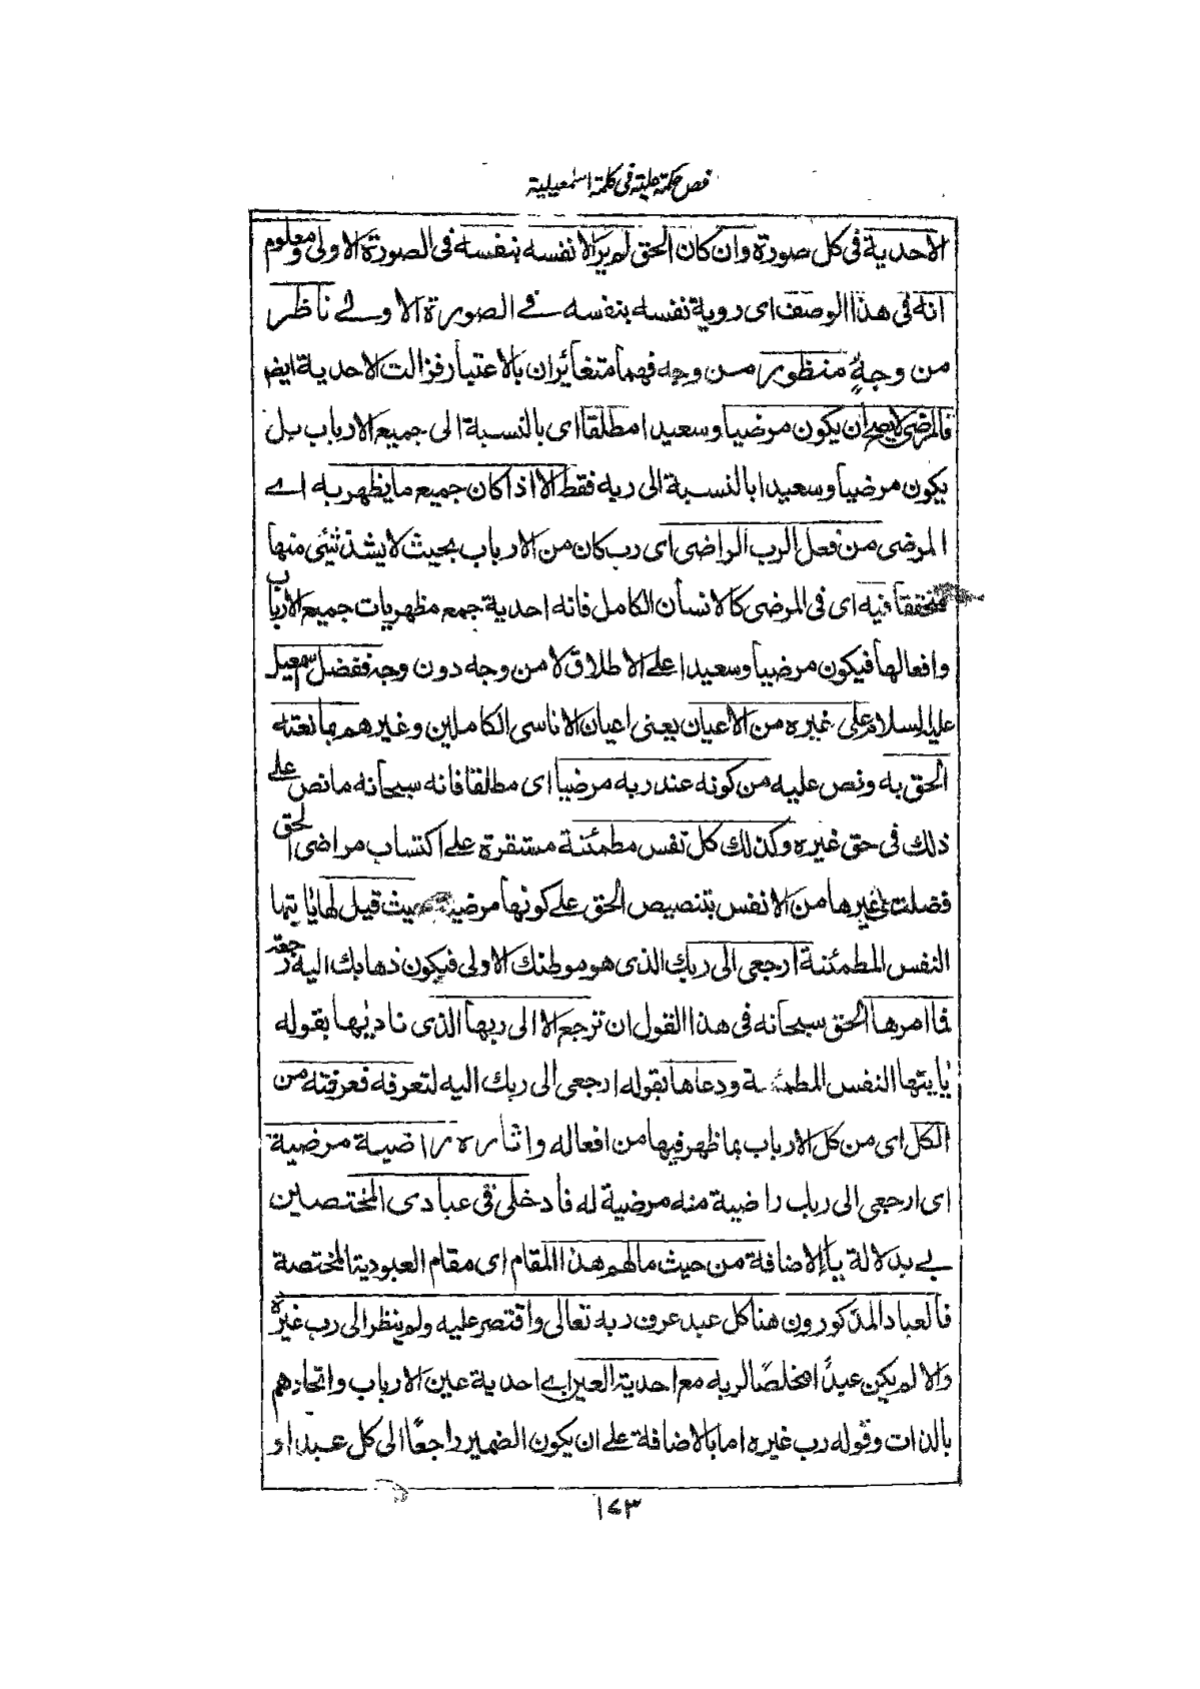 فص حكمة علية فى كلمة اسمعيلية
الاحدية فى كل صورة وان كان الحق لم ير الا نفسه بنفسه فى الصورة الاولى ومعلوم
انه فى هذا الوصف اى روية نفسه بنفسه فے الصورة الاولے ناظر
من وجهٍ منظور من وجه فهما متغائران بالاعتبار فزالت الاحدية ايضا
فالمرضى لا يصح ان يكون مرضيا وسعيدا مطلقا اى بالنسبة الى جميع الارباب بل
يكون مرضيا وسعيدا بالنسبة الى ربه فقط الا اذا كان جميع ما يظهر به اے
المرضى من فعل الرب الراضى اى رب كان من الارباب بحيث لا يشذ شئى منها
متحققا فيه اى فى المرضى كالانسان الكامل فانه احدية جمع مظهريات جميع الارباب
وافعالها فيكون مرضيا وسعيدا علے الاطلاق لا من وجه دون وجه ففضل اسمعيل
عليه السلام على غيره من الاعيان يعنى اعيان الاناسى الكاملين وغيرهم بما نعته
الحق به ونص عليه من كونه عند ربه مرضيا اى مطلقا فانه سبحانه ما نص علے
ذلك فى حق غيره وكذلك كل نفس مطمئنة مستقرة علے اكتساب مراضى الحق
فضلت على غيرها من الانفس بتنصيص الحق علے كونها مرضية حيث قيل لها يا ايتها
النفس المطمئنة ارجعى الى ربك الذى هو موطنك الاولى فيكون ذهابك اليه رجعة
فما امرها الحق سبحانه فى هذا القول ان ترجع الا الى ربها الذى ناديها بقوله
يا يتها النفس المطمئنة ودعاها بقوله ارجعى الى ربك اليه لتعرفه فعرفته من
الكل اى من كل الارباب بما ظهر فيها من افعاله واثاره راضية مرضية
اى ارجعى الى ربك راضية منه مرضية له فادخلى فى عبادى المختصين
بے بدلالة ياء الاضافة من حيث ما لهم هذا المقام اى مقام العبودية المختصة
فالعباد المذكورون هنا كل عبد عرف ربه تعالى واقتصر عليه ولم ينظر الى رب غيره
والا لم يكن عبدًا مخلصًا لربه مع احدية العين اے احدية عين الارباب واتحادهم
بالذات وقوله رب غيره اما بالاضافة علے ان يكون الضمير راجعًا الى كل عبد او
١٤٣